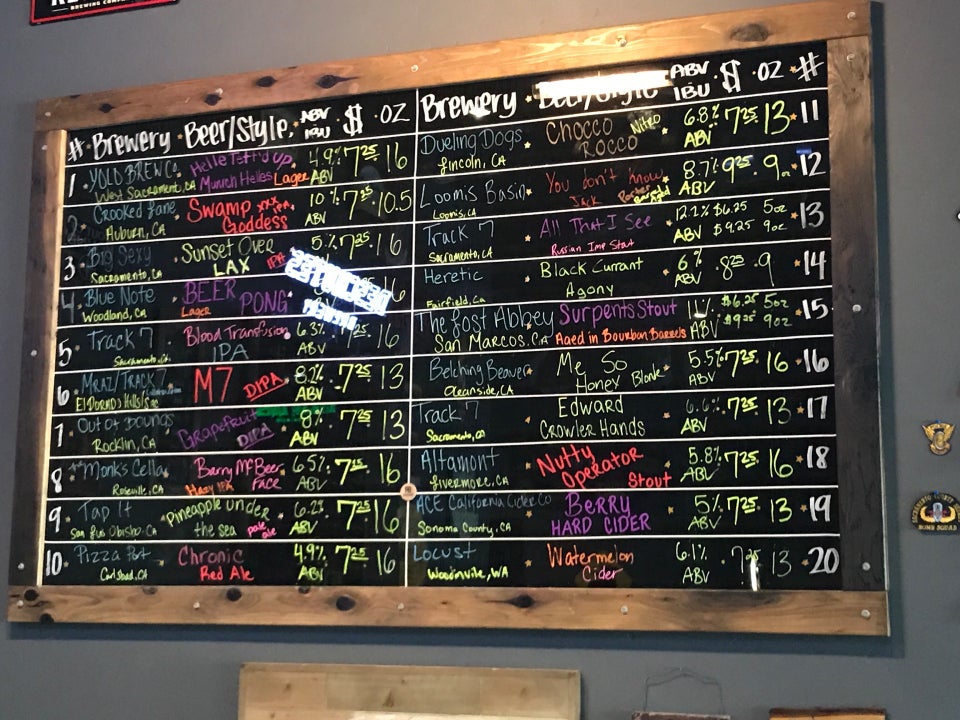 BREWING COMPANY
# Brewery Beer/Style ABV IBU $ OZ
1 YOLO BREW Co. Helle Tett'd Up 4.9% 7.25 16
West Sacramento, CA Munich Helles Lager ABV
2 Crooked Lane Swamp 10% 7.25 10.5
Auburn, CA Goddess ABV
3 Big Sexy Sunset Over 5% 7.25 16
Sacramento, CA LAX IPA
4 Blue Note BEER PONG
Woodland, CA Lager
5 Track 7 Blood Transfusion 6.3% 7.25 16
Sacramento, CA IPA ABV
6 MRAZ/TRACK 7 M7 DIPA 8.1% 7.25 13
El Dorado Hills/Sac ABV
7 Out of Bounds Grapefruit 8% 7.25 13
Rocklin, CA DIPA ABV
8 Monks Cellar Barry McBeer 6.5% 7.25 16
Roseville, CA Hazy IPA Face ABV
9 Tap It Pineapple under 6.2% 7.25 16
San Luis Obispo, CA the sea pale ale ABV
10 Pizza Port Chronic 4.9% 7.25 16
Carlsbad, CA Red Ale ABV
Brewery Beer/Style ABV IBU $ OZ #
Dueling Dogs Chocco Nitro 6.8% 7.25 13 11
Lincoln, CA Rocco ABV
Loomis Basin You don't know 8.7% 9.25 9oz 12
Loomis, CA Jack Porter ABV
Track 7 All That I See 12.2% $6.25 5oz 13
Sacramento, CA Russian Imp Stout ABV $9.25 9oz
Heretic Black Currant 6% 8.25 9 14
Fairfield, Ca Agony ABV
The Lost Abbey Surpents Stout 11% $6.25 5oz 15
San Marcos, CA Aged in Bourbon Barrels ABV $9.25 9oz
Belching Beaver Me So 5.5% 7.25 16 16
Oceanside, CA Honey Blonde ABV
Track 7 Edward 6.6% 7.25 13 17
Sacramento, CA Crowler Hands ABV
Altamont Nutty 5.8% 7.25 16 18
Livermore, CA Operator Stout ABV
ACE California Cider Co Berry 5% 7.25 13 19
Sonoma County, CA HARD CIDER ABV
Locust Watermelon 6.1% 7.25 13 20
Woodinville, WA Cider ABV
BOMB SQUAD